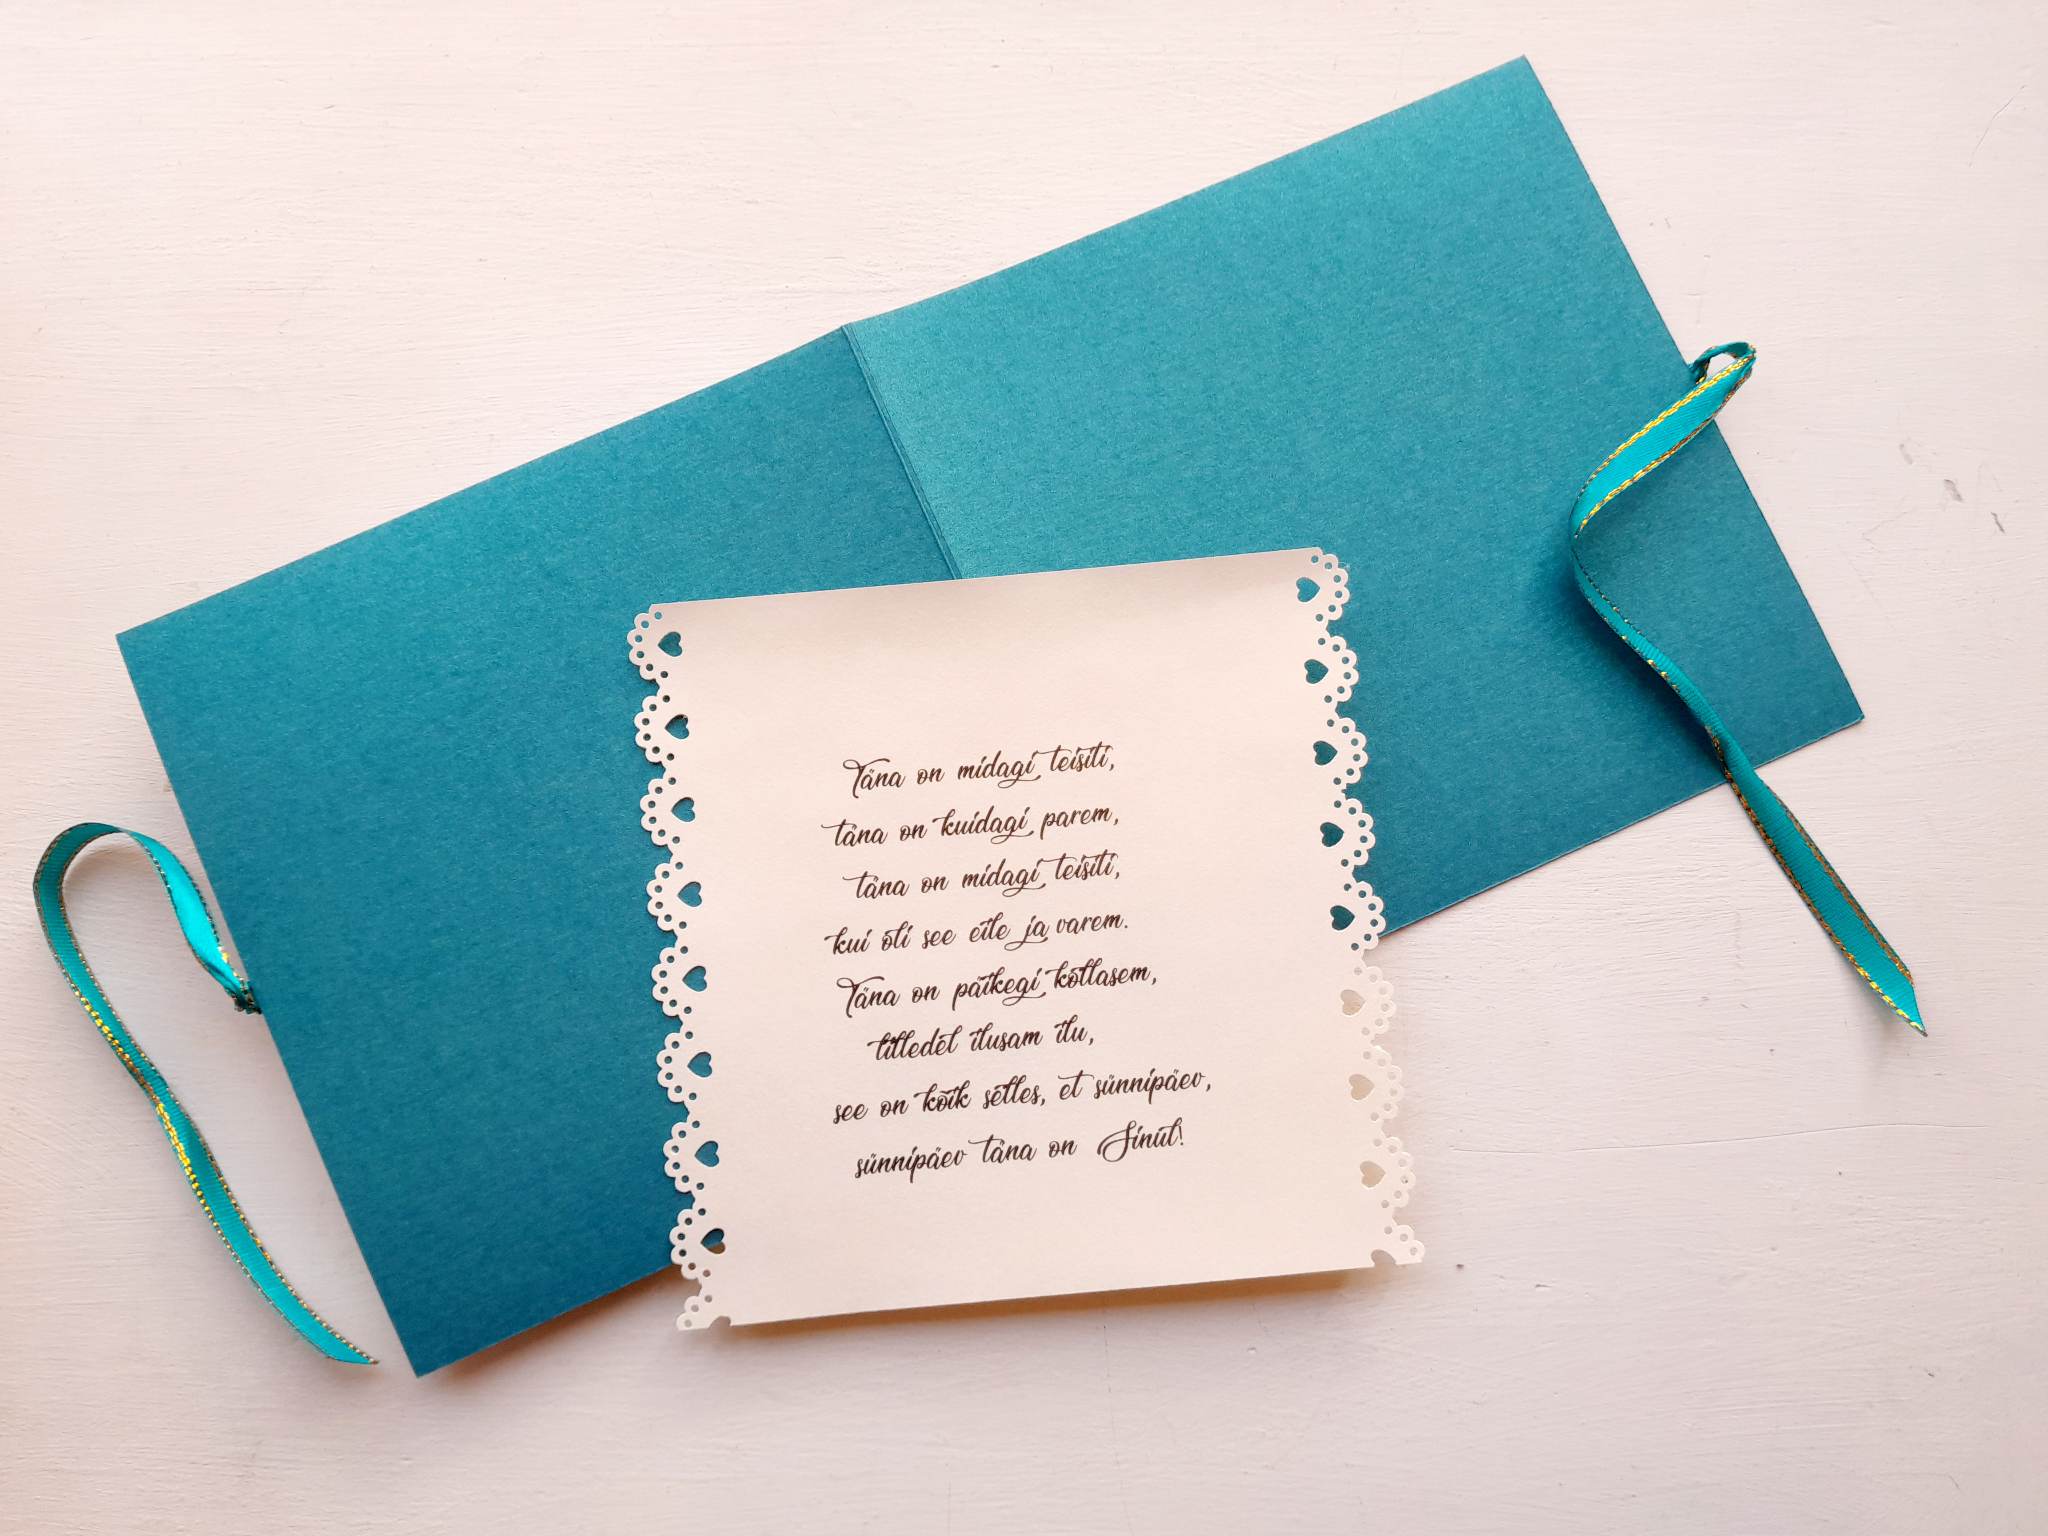 Täna on midagi teisiti,
täna on kuidagi parem,
täna on midagi teisiti,
kui oli see eile ja varem.
Täna on päikegi kollasem,
lilledel ilusam ilu,
see on kõik selles, et sünnipäev,
sünnipäev täna on Sinul!